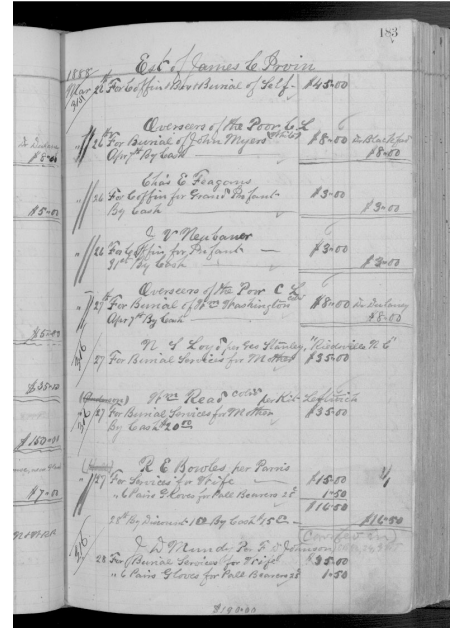 183
1888 Est. of James C Irvin
Mar 26th For Coffin Box & Burial of Self $45.00
Overseers of the Poor C. L.
" 26th For Burial of John Myers $8.00
Apr 7th By Cash $8.00
Chas E Feagans
" 26 For Coffin for Grand Infant $3.00
By Cash $3.00
J V Neubauer
" 26 For Coffin for Infant $3.00
31st By Cash $3.00
Overseers of the Poor C L
" 27th For Burial of Wm Washington $8.00 Dr Dulaney
Apr 7th By Cash $8.00
N. S. Loyd per Geo Stanley, "Reidsville N C"
27 For Burial Services for Mother $35.00
Wm Read Cold per Kit Leftwich
" 27 For Burial Services for Mother $35.00
By Cash $20.00
R E Bowles per Parris
" 27 For Services for Wife $15.00
" 6 Pairs Gloves for Pall Bearers 25 1.50
$16.50
28th By Discount 1.50 By Cash 15.00 $16.50
J D Munday Per F D Johnson
28 For Burial Services for Wife $35.00
" 6 Pairs Gloves for Pall Bearers 25 1.50
$198.00
$5.00
$5.00
$35.00
$150.00
$7.00